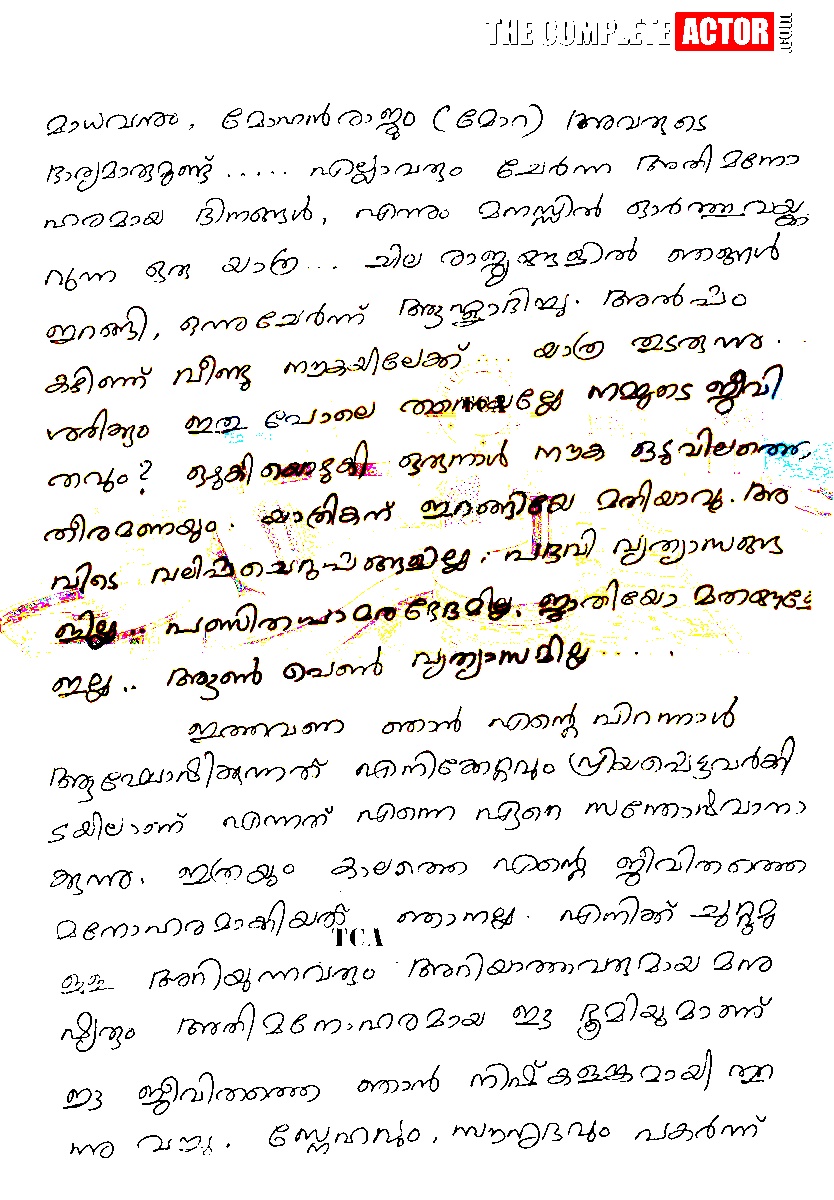 THE COMPLETE ACTOR
മാധവനും, മോഹൻരാജും (മോറ) അവരുടെ
ഭാര്യമാരുമുണ്ട് ..... എല്ലാവരും ചേർന്ന അതിമനോ
ഹരമായ ദിനങ്ങൾ, എന്നും മനസ്സിൽ ഓർത്തുവയ്ക്കു
വുന്ന ഒരു യാത്ര... ചില രാജ്യങ്ങളിൽ ഞങ്ങൾ
ഇറങ്ങി, ഒന്നുചേർന്ന് ആഹ്ലാദിച്ചു. അൽപം
കഴിഞ്ഞ് വീണ്ടു നൗകയിലേക്ക് ... യാത്ര തുടരുന്നു.
ശരിക്കും ഇതു പോലെ തന്നെയല്ലേ നമ്മുടെ ജീവി
തവും? ഒഴുകിയൊഴുകി ഒരുനാൾ നൗക ഒടുവിലത്തെ,
തീരമണയും. യാത്രികന് ഇറങ്ങിയേ മതിയാവൂ. അ
വിടെ വലിപ്പചെറുപ്പങ്ങളില്ല, പദവി വ്യത്യാസങ്ങ
ളില്ല.. പണ്ഡിതപാമരഭേദമില്ല, ജാതിയോ മതങ്ങളോ
ഇല്ല.. ആൺ പെൺ വ്യത്യാസമില്ല.....
ഇത്തവണ ഞാൻ എന്റെ പിറന്നാൾ
ആഘോഷിക്കുന്നത് എനിക്കേറ്റവും പ്രിയപ്പെട്ടവർക്കി
ടയിലാണ് എന്നത് എന്നെ ഏറെ സന്തോഷവാനാ
ക്കുന്നു. ഇത്രയും കാലത്തെ എന്റെ ജീവിതത്തെ
മനോഹരമാക്കിയത് ഞാനല്ല. എനിക്ക് ചുറ്റുമു
TCA
ള്ള അറിയുന്നവരും അറിയാത്തവരുമായ മനു
ഷ്യരും അതിമനോഹരമായ ഈ ഭൂമിയുമാണ്
ഈ ജീവിതത്തെ ഞാൻ നിഷ്കളങ്കമായി
ന്നു വച്ചു. സ്നേഹവും, സൗഹൃദവും പകർന്ന്